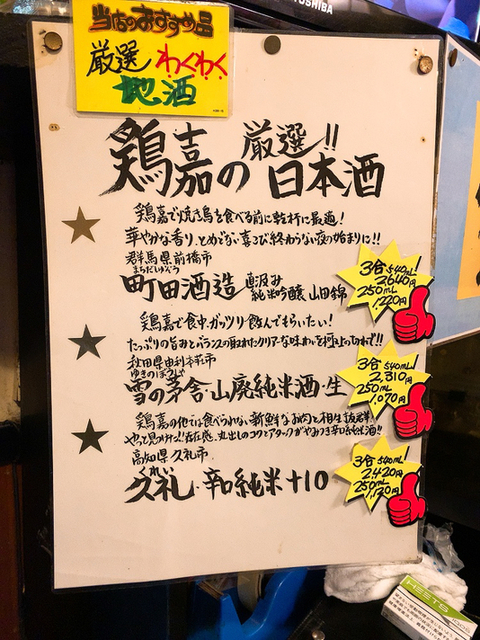 TOSHIBA
当店のおすすめ品
厳選わくわく
地酒
鶏嘉の厳選!!日本酒
鶏嘉で焼き鳥を食べる前に乾杯に最適!
華やかな香り、とめどない喜び終わらない夜の始まりに!!
群馬県前橋市
まちだしゅぞう
町田酒造 直汲み 純米吟醸 山田錦
3合540ml!
2,640円
250mL
1,220円
鶏嘉で食中、ガッツリ飲んでもらいたい!
たっぷりの旨みとバランスの取れたクリアーな味わいを極上のあわで!!
秋田県由利本荘市
ゆきのぼうしゃ
雪の茅舎・山廃純米酒・生
3合540ml!
2,310円
250mL
1,070円
鶏嘉の他では食べられない新鮮なお肉と相生抜群
やって見かけっ!存在感丸出しのコクとアタックがやみつき辛口純米酒!!
高知県久礼市
くれい
久礼・辛口純米+10
3合540ml!
2,420円
250mL
1,120円
HEETS